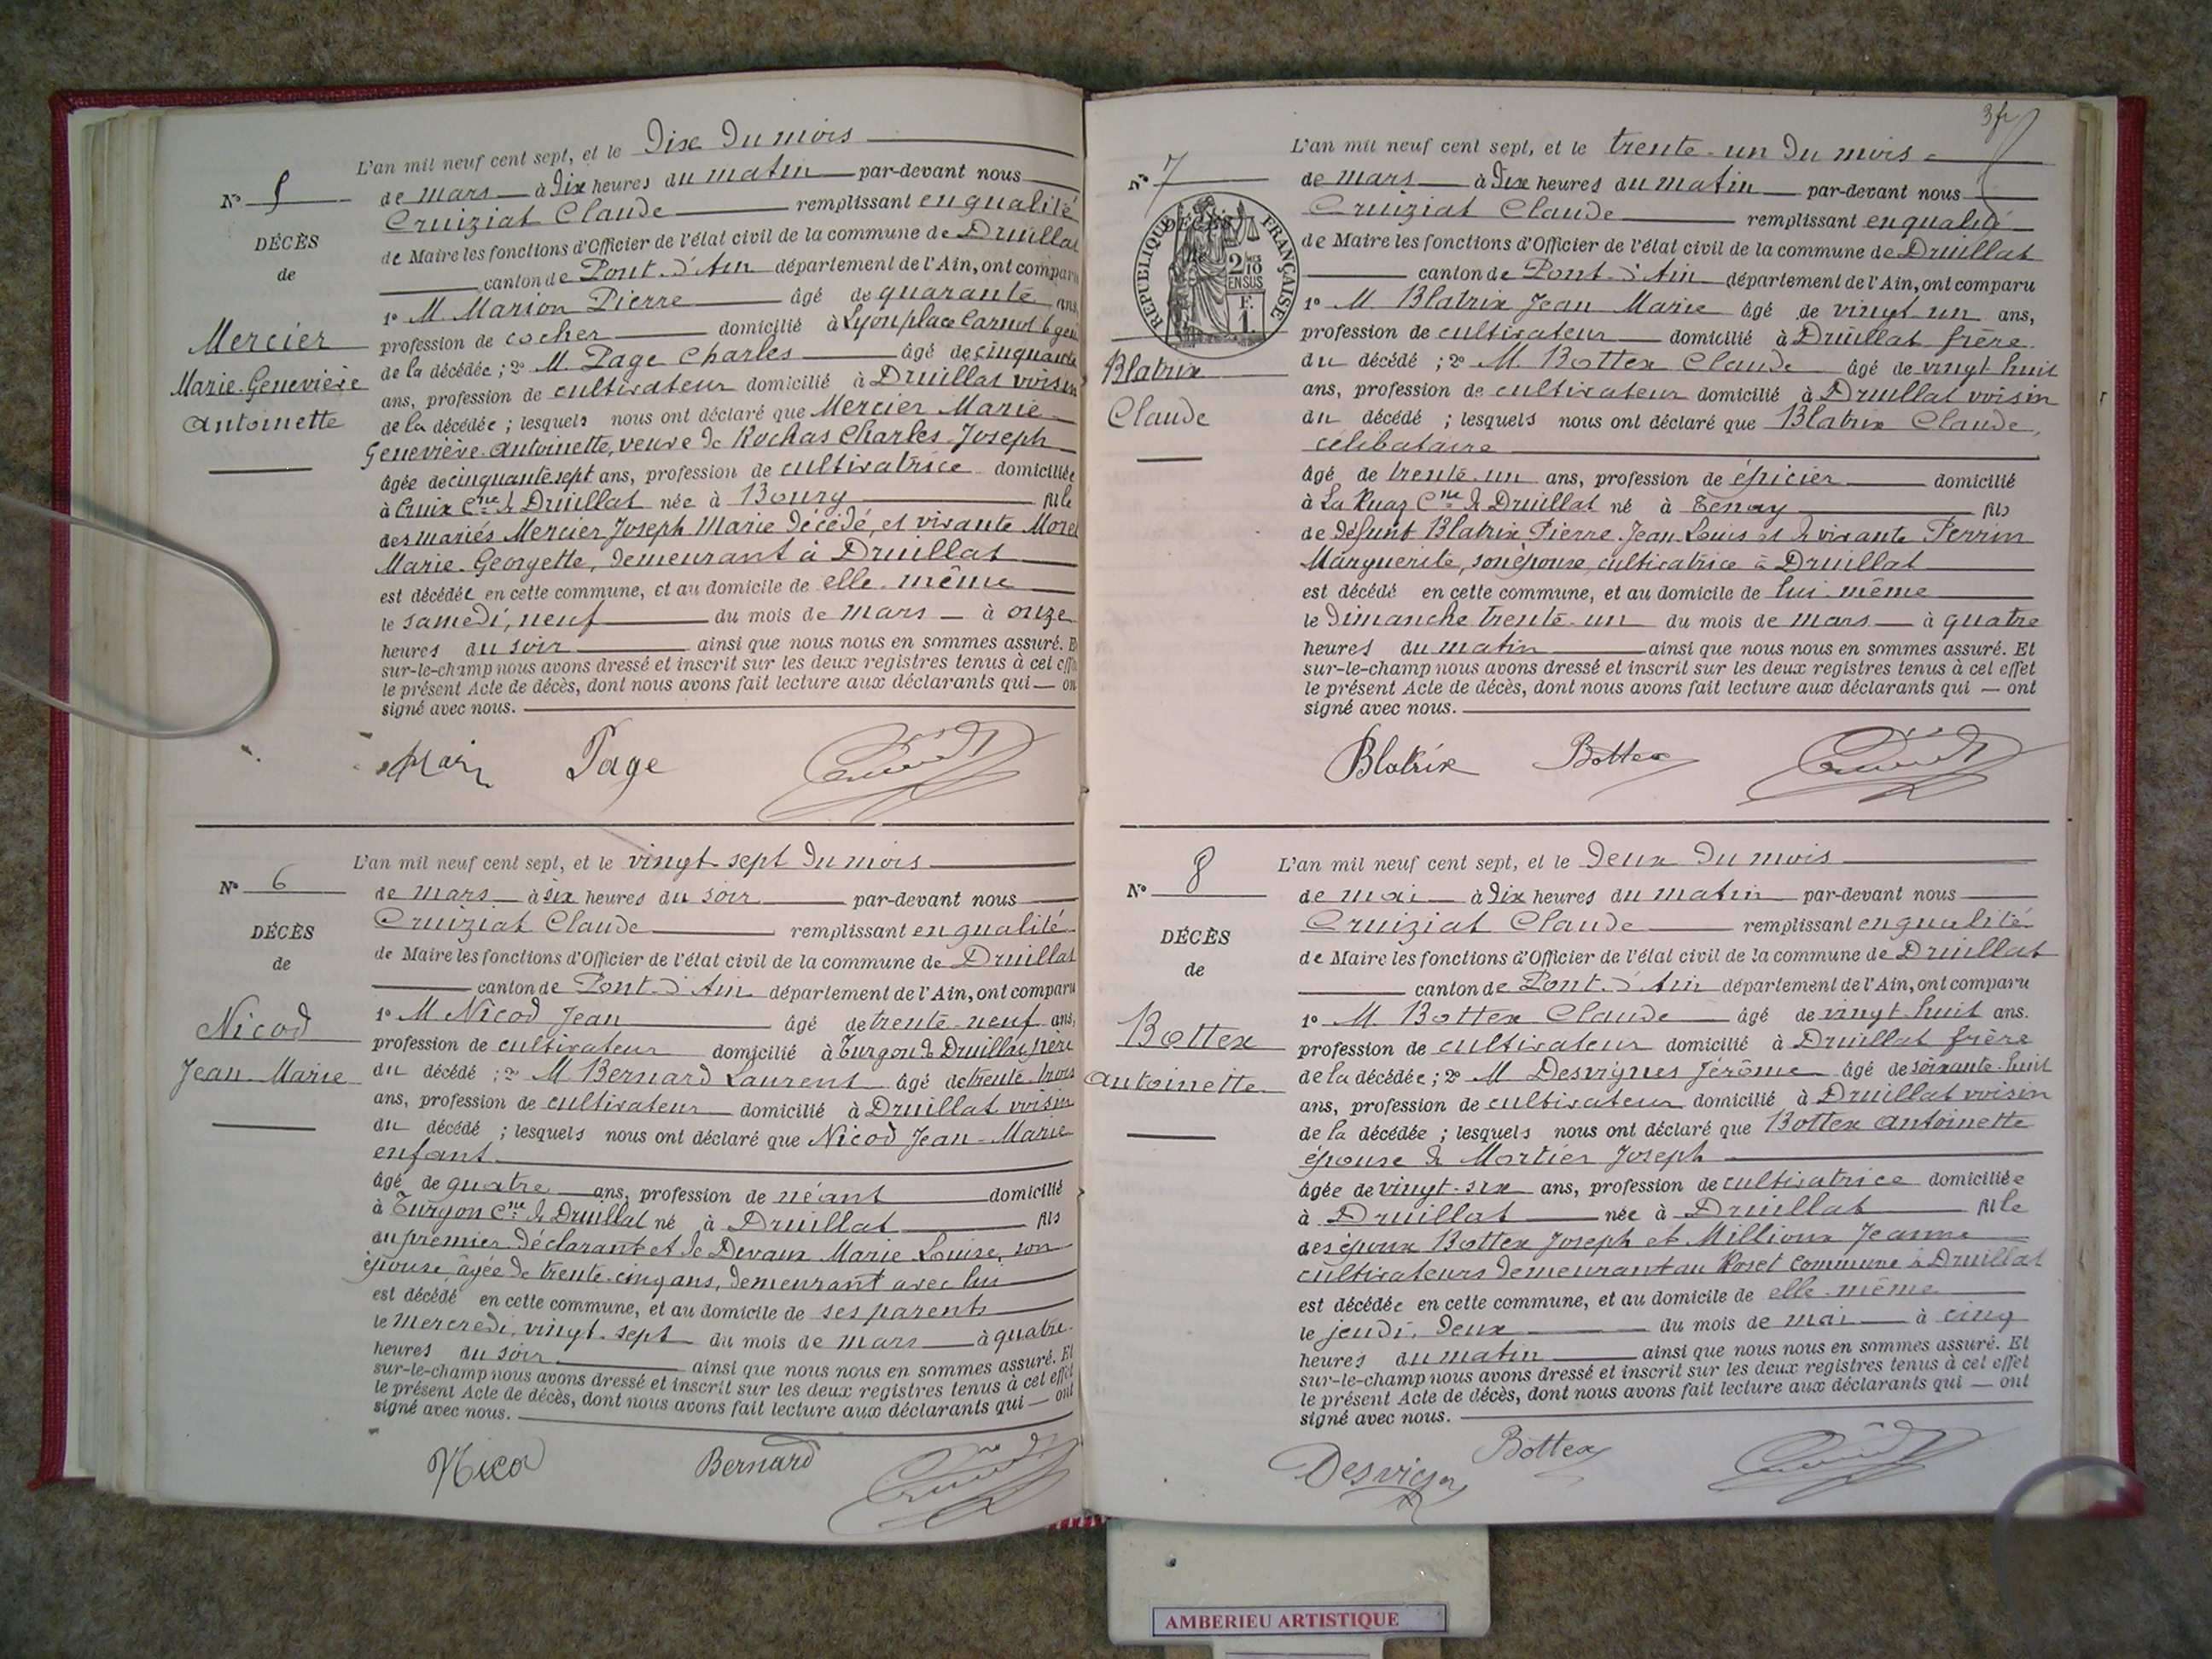 L'an mil neuf cent sept, et le dix du mois
N° 5
de mars à dix heures du matin par-devant nous
Cruiziat Claude remplissant en qualité
DÉCÈS
de Maire les fonctions d'Officier de l'état civil de la commune de Druillat
de
canton de Pont-d'Ain département de l'Ain, ont comparu
1° M. Marion Pierre âgé de quarante ans,
Mercier
profession de cocher domicilié à Lyon place Carnot 6
de la décédée ; 2° M. Page Charles âgé de cinquante
Marie-Geneviève
ans, profession de cultivateur domicilié à Druillat voisin
Antoinette
de la décédée ; lesquels nous ont déclaré que Mercier Marie
Geneviève-Antoinette, veuve de Rochas Charles-Joseph
âgée de cinquante sept ans, profession de cultivatrice domiciliée
à Cruix Cne de Druillat née à Bourg fille
des mariés Mercier Joseph Marie décédé, et vivante Morel
Marie-Georgette, demeurant à Druillat
est décédée en cette commune, et au domicile de elle-même
le samedi, neuf du mois de mars à onze
heures du soir ainsi que nous nous en sommes assuré. E
sur-le-champ nous avons dressé et inscrit sur les deux registres tenus à cet eff
le présent Acte de décès, dont nous avons fait lecture aux déclarants qui — on
signé avec nous.
Page
L'an mil neuf cent sept, et le vingt-sept du mois
N° 6
de mars à six heures du soir par-devant nous
Cruiziat Claude remplissant en qualité
DÉCÈS
de Maire les fonctions d'Officier de l'état civil de la commune de Druillat
de
canton de Pont-d'Ain département de l'Ain, ont comparu
Nicod
1° M. Nicod Jean âgé de trente-neuf ans,
profession de cultivateur domicilié à Turgon de Druillat père
Jean-Marie
du décédé ; 2° M. Bernard Laurent âgé de trente-trois
ans, profession de cultivateur domicilié à Druillat voisin
du décédé ; lesquels nous ont déclaré que Nicod Jean-Marie
enfant
âgé de quatre ans, profession de néant domicilié
à Turgon Cne de Druillat né à Druillat fils
du premier déclarant et de Devaux Marie Louise, son
épouse âgée de trente-cinq ans, demeurant avec lui
est décédé en cette commune, et au domicile de ses parents
le mercredi, vingt-sept du mois de mars à quatre
heures du soir ainsi que nous nous en sommes assuré. Et
sur-le-champ nous avons dressé et inscrit sur les deux registres tenus à cet effet
le présent Acte de décès, dont nous avons fait lecture aux déclarants qui — ont
signé avec nous.
Nicod Bernard
3
L'an mil neuf cent sept, et le trente-un du mois
N° 7
de mars à dix heures du matin par-devant nous
Cruiziat Claude remplissant en qualité
DÉCÈS
RÉPUBLIQUE FRANÇAISE
de Maire les fonctions d'Officier de l'état civil de la commune de Druillat
canton de Pont-d'Ain département de l'Ain, ont comparu
2/10 EN SUS
F. 1.
1° M. Blatrix Jean Marie âgé de vingt-un ans,
profession de cultivateur domicilié à Druillat frère
Blatrix
du décédé ; 2° M. Bottex Claude âgé de vingt-huit
ans, profession de cultivateur domicilié à Druillat voisin
Claude
du décédé ; lesquels nous ont déclaré que Blatrix Claude,
célibataire
âgé de trente-un ans, profession de épicier domicilié
à La Ruaz Cne de Druillat né à Tenay fils
de défunt Blatrix Pierre-Jean-Louis et de vivante Perrin
Marguerite, son épouse, cultivatrice à Druillat
est décédé en cette commune, et au domicile de lui-même
le dimanche trente-un du mois de mars à quatre
heures du matin ainsi que nous nous en sommes assuré. Et
sur-le-champ nous avons dressé et inscrit sur les deux registres tenus à cet effet
le présent Acte de décès, dont nous avons fait lecture aux déclarants qui — ont
signé avec nous.
Blatrix Bottex
L'an mil neuf cent sept, et le deux du mois
N° 8
de mai à dix heures du matin par-devant nous
Cruiziat Claude remplissant en qualité
DÉCÈS
de Maire les fonctions d'Officier de l'état civil de la commune de Druillat
de
canton de Pont-d'Ain département de l'Ain, ont comparu
Bottex
1° M. Bottex Claude âgé de vingt-huit ans.
profession de cultivateur domicilié à Druillat frère
Antoinette
de la décédée ; 2° M. Desvignes Jérôme âgé de soixante-huit
ans, profession de cultivateur domicilié à Druillat voisin
de la décédée ; lesquels nous ont déclaré que Bottex Antoinette
épouse de Mortier Joseph
âgée de vingt-six ans, profession de cultivatrice domiciliée
à Druillat née à Druillat fille
des époux Bottex Joseph et Millioux Jeanne
cultivateurs demeurant au Roset Commune de Druillat
est décédée en cette commune, et au domicile de elle-même
le jeudi, deux du mois de mai à cinq
heures du matin ainsi que nous nous en sommes assuré. Et
sur-le-champ nous avons dressé et inscrit sur les deux registres tenus à cet effet
le présent Acte de décès, dont nous avons fait lecture aux déclarants qui — ont
signé avec nous.
Bottex
AMBERIEU ARTISTIQUE